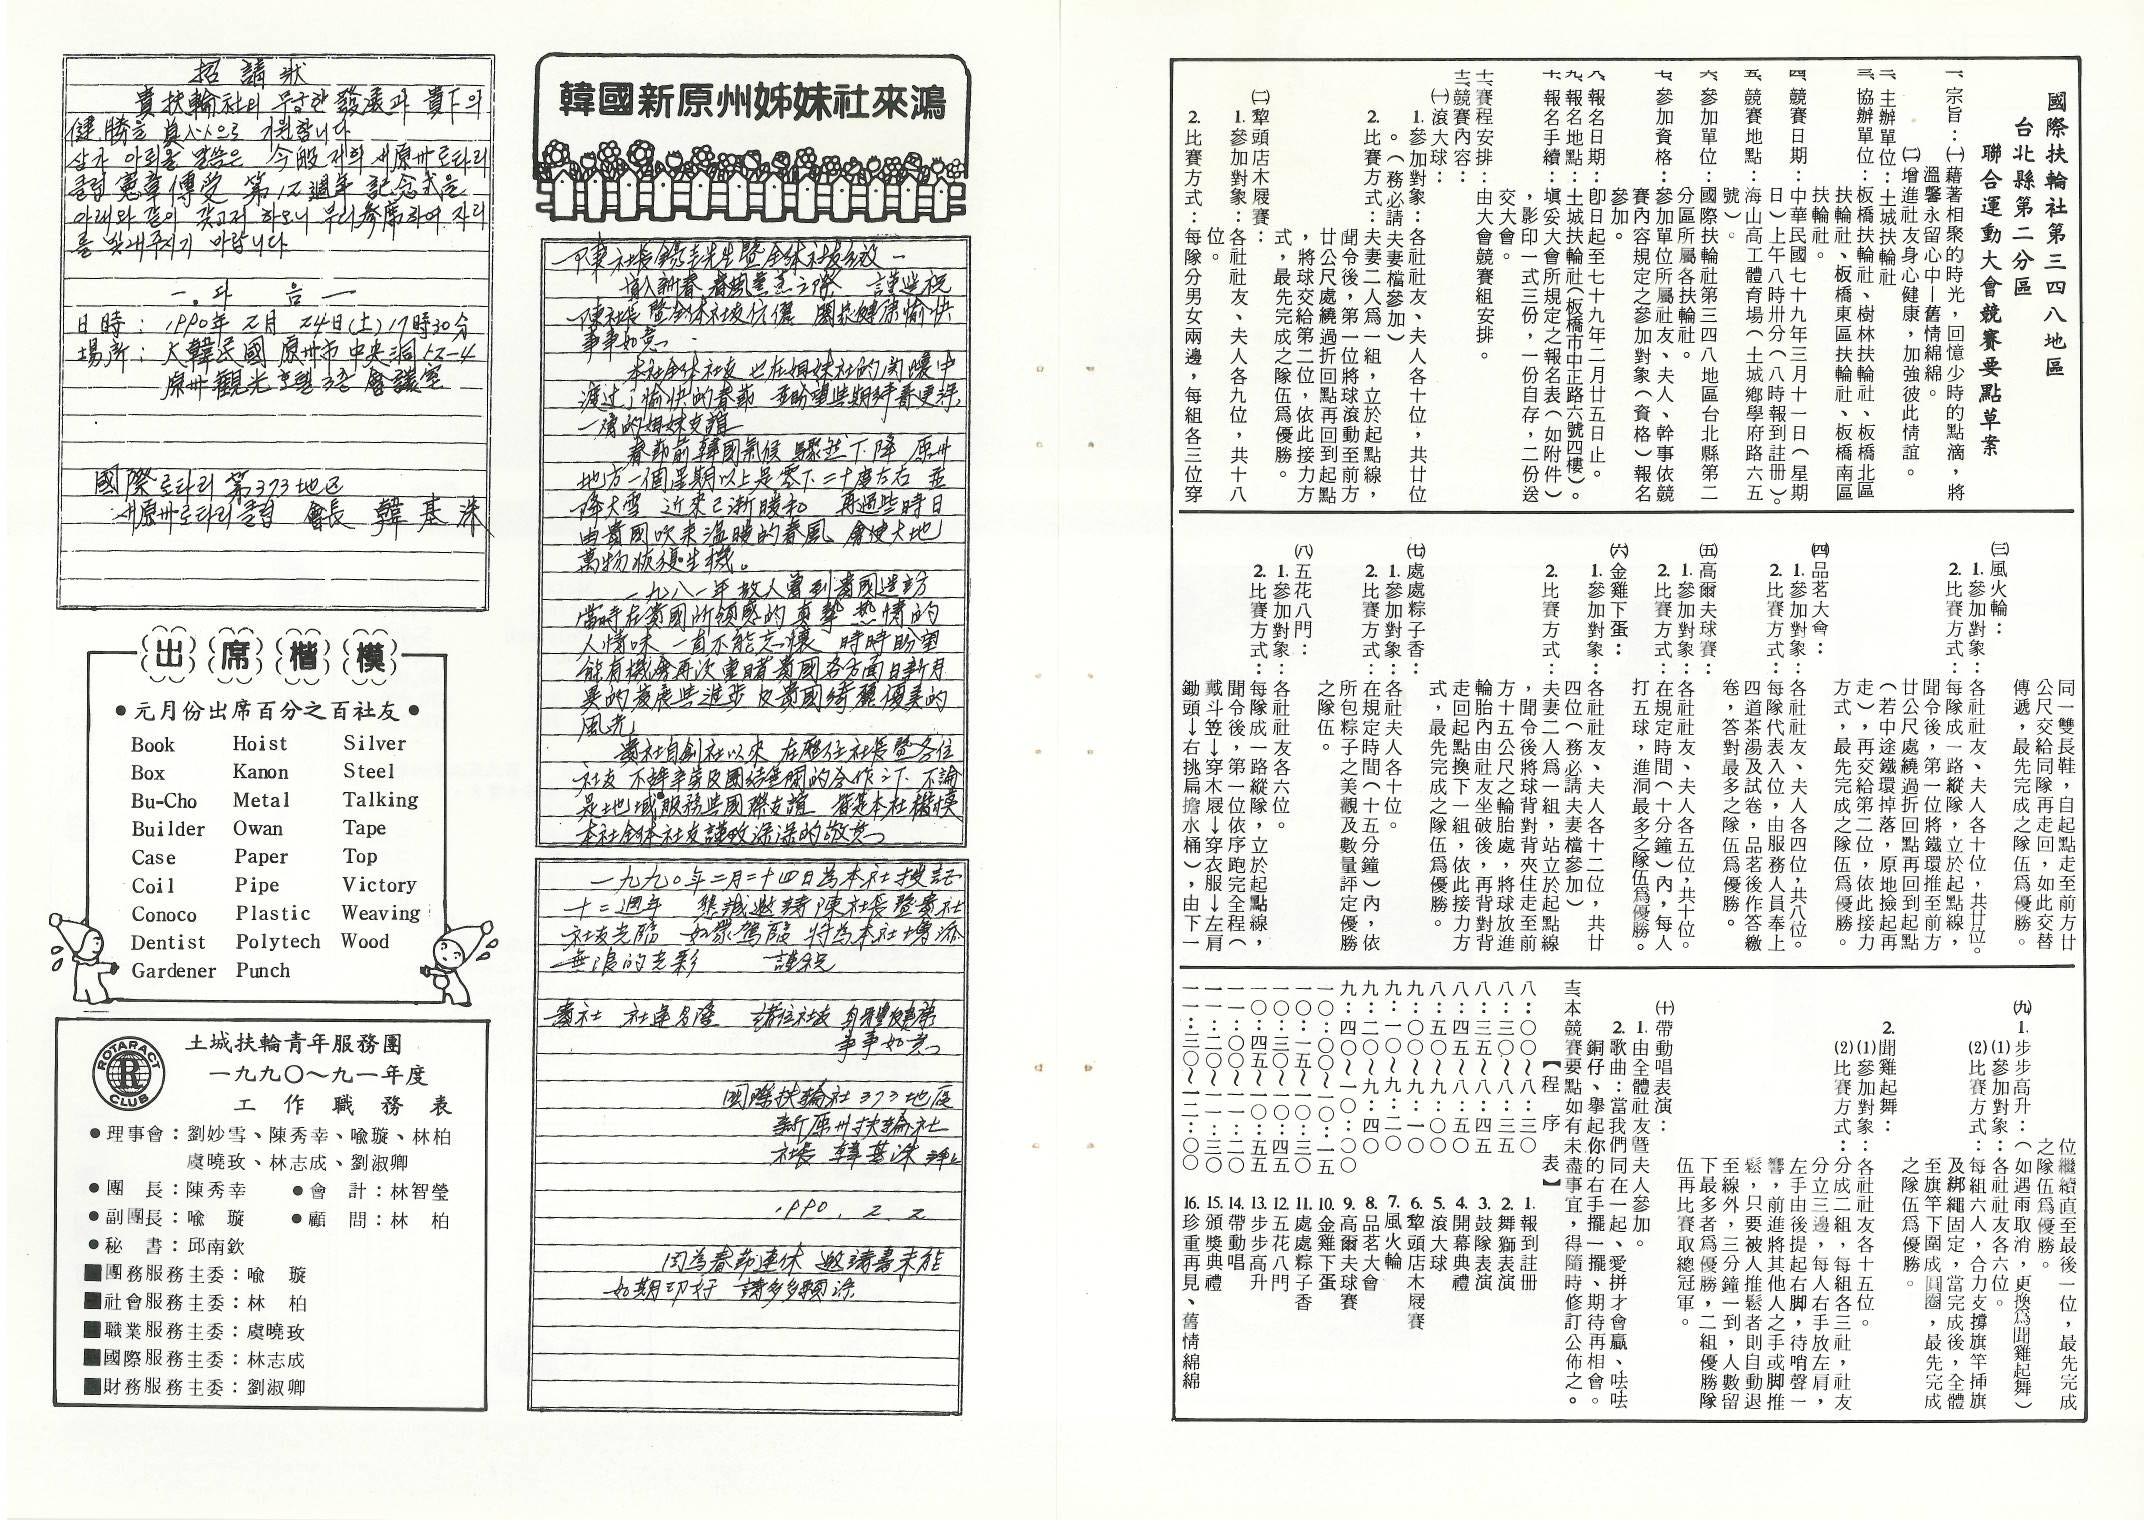 國際扶輪社第三四八地區
台北縣第二分區
聯合運動大會競賽要點草案
一、宗旨：㈠藉著相聚的時光，回憶少時的點滴，將
溫馨永留心中—舊情綿綿。
㈡增進社友身心健康，加強彼此情誼。
二、主辦單位：土城扶輪社
三、協辦單位：板橋扶輪社、樹林扶輪社、板橋北區
扶輪社、板橋東區扶輪社、板橋南區
扶輪社。
四、競賽日期：中華民國七十九年三月十一日（星期
日）上午八時卅分（八時報到註冊）。
五、競賽地點：海山高工體育場（土城鄉學府路六五
號）。
六、參加單位：國際扶輪社第三四八地區台北縣第二
分區所屬各扶輪社。
七、參加資格：參加單位所屬社友、夫人、幹事依競
賽內容規定之參加對象（資格）報名
參加。
八、報名日期：即日起至七十九年二月廿五日止。
九、報名地點：土城扶輪社（板橋市中正路六號四樓）。
十、報名手續：填妥大會所規定之報名表（如附件）
，影印一式三份，一份自存，二份送
交大會。
十一、賽程安排：由大會競賽組安排。
十二、競賽內容：
㈠滾大球：
1.參加對象：各社社友、夫人各十位，共廿位
。（務必請夫妻檔參加）
2.比賽方式：夫妻二人爲一組，立於起點線，
聞令後，第一位將球滾動至前方
廿公尺處繞過折回點再回到起點
，將球交給第二位，依此接力方
式，最先完成之隊伍爲優勝。
㈡犂頭店木屐賽：
1.參加對象：各社社友、夫人各九位，共十八
位。
2.比賽方式：每隊分男女兩邊，每組各三位穿
同一雙長鞋，自起點走至前方廿
公尺交給同隊再走回，如此交替
傳遞，最先完成之隊伍爲優勝。
㈢風火輪：
1.參加對象：各社社友、夫人各十位，共廿位。
2.比賽方式：每隊成一路縱隊，立於起點線，
聞令後，第一位將鐵環推至前方
廿公尺處繞過折回點再回到起點
（若中途鐵環掉落，原地撿起再
走），再交給第二位，依此接力
方式，最先完成之隊伍爲優勝。
㈣品茗大會：
1.參加對象：各社社友、夫人各四位，共八位。
2.比賽方式：每隊代表入位，由服務人員奉上
四道茶湯及試卷，品茗後作答繳
卷，答對最多之隊伍爲優勝。
㈤高爾夫球賽：
1.參加對象：各社社友、夫人各五位，共十位。
2.比賽方式：在規定時間（十分鐘）內，每人
打五球，進洞最多之隊伍爲優勝。
㈥金雞下蛋：
1.參加對象：各社社友、夫人各十二位，共廿
四位（務必請夫妻檔參加）
2.比賽方式：夫妻二人爲一組，站立於起點線
，聞令後將球背對背夾住走至前
方十五公尺之輪胎處，將球放進
輪胎內由社友坐破後，再背對背
走回起點換下一組，依此接力方
式，最先完成之隊伍爲優勝。
㈦處處粽子香：
1.參加對象：各社夫人各十位。
2.比賽方式：在規定時間（十五分鐘）內，依
所包粽子之美觀及數量評定優勝
之隊伍。
㈧五花八門：
1.參加對象：各社社友各六位。
2.比賽方式：每隊成一路縱隊，立於起點線，
聞令後，第一位依序跑完全程（
戴斗笠→穿木屐→穿衣服→左肩
鋤頭→右挑扁擔水桶），由下一
位繼續直至最後一位，最先完成
之隊伍爲優勝。
㈨1.步步高升：（如遇雨取消，更換爲聞雞起舞）
⑴參加對象：各社社友各六位。
⑵比賽方式：每組六人，合力支撐旗竿挿旗
及綁繩固定，當完成後，全體
至旗竿下圍成圓圈，最先完成
之隊伍爲優勝。
2.聞雞起舞：
⑴參加對象：各社社友各十五位。
⑵比賽方式：分成二組，每組各三社，社友
分立三邊，每人右手放左肩，
左手由後提起右脚，待哨聲一
響，前進將其他人之手或脚推
鬆，只要被人推鬆者則自動退
至線外，三分鐘一到，人數留
下最多者爲優勝，二組優勝隊
伍再比賽取總冠軍。
㈩帶動唱表演：
1.由全體社友暨夫人參加。
2.歌曲：當我們同在一起、愛拼才會贏、呿呿
銅仔、擧起你的右手擺一擺、期待再相會。
十三、本競賽要點如有未盡事宜，得隨時修訂公佈之。
【程序表】
八：〇〇～八：三〇 1.報到註冊
八：三〇～八：三五 2.舞獅表演
八：三五～八：四五 3.鼓隊表演
八：四五～八：五〇 4.開幕典禮
八：五〇～九：〇〇 5.滾大球
九：〇〇～九：一〇 6.犂頭店木屐賽
九：一〇～九：二〇 7.風火輪
九：二〇～九：四〇 8.品茗大會
九：四〇～一〇：〇〇 9.高爾夫球賽
一〇：〇〇～一〇：一五 10.金雞下蛋
一〇：一五～一〇：三〇 11.處處粽子香
一〇：三〇～一〇：四五 12.五花八門
一〇：四五～一〇：五五 13.步步高升
一一：〇〇～一一：二〇 14.帶動唱
一一：二〇～一一：三〇 15.頒獎典禮
一一：三〇～一二：〇〇 16.珍重再見、舊情綿綿
韓國新原州姊妹社來鴻
謹此祝
陳社長暨全体社友伉儷 闔家健康愉快
事事如意
本社全体社友也在姐妹社的関懷中
渡过了愉快的春節
春節前韓國氣候驟然下降 原州
地方一個星期以上是零下二十度左右 並
降大雪 近來已漸暖和 再過些時日
由貴國吹來溫暖的春風 會使大地
萬物恢復生機。
一九八一年故人曾到貴國造訪
當時在貴國所領感的真摯熱情的
人情味 一直不能忘懷 時時盼望
能有機會再次重睹貴國各方面日新月
異的發展與進步 及貴國綺麗優美的
風光
貴社自創社以來 在歷任社長暨各位
社友
本社全体社友謹致深深的敬意
一九九〇年二月二十四日為本社授証
十二週年 竭誠邀請陳社長暨貴社
社友光臨 如蒙駕臨 將為本社增添
無限的光彩 謹祝
貴社 社運昌隆 諸位社友 身體健康
事事如意
國際扶輪社373地區
新原州扶輪社
社長 韓基洙 拜上
1990. 2. 2
因為春節連休 邀請書未能
如期印好 請多多原諒
招請狀
貴扶輪社의 무궁한 發展과 貴下의
健勝을 真心으로 기원합니다
삼가 아뢰올 말씀은 今般 저희 새原州로타리
클럽 憲章傳受 第12週年 記念式을
아래와 같이 갖고저 하오니 부디 參席하여 자리
를 빛내주시기 바랍니다
— 다 음 —
日時： 1990年 2月 24日(土) 17時30分
場所： 大韓民國 原州市 中央洞 52-4
原州觀光호텔 3층 會議室
國際로타리 第373地区
새原州로타리클럽 會長 韓基洙
出席楷模
●元月份出席百分之百社友●
Book Hoist Silver
Box Kanon Steel
Bu-Cho Metal Talking
Builder Owan Tape
Case Paper Top
Coil Pipe Victory
Conoco Plastic Weaving
Dentist Polytech Wood
Gardener Punch
ROTARACT
R
CLUB
土城扶輪青年服務團
一九九〇～九一年度
工作職務表
●理事會：劉妙雪、陳秀幸、喩璇、林柏
虞曉玫、林志成、劉淑卿
●團 長：陳秀幸 ●會 計：林智瑩
●副團長：喩 璇 ●顧 問：林 柏
●秘 書：邱南欽
■團務服務主委：喩 璇
■社會服務主委：林 柏
■職業服務主委：虞曉玫
■國際服務主委：林志成
■財務服務主委：劉淑卿